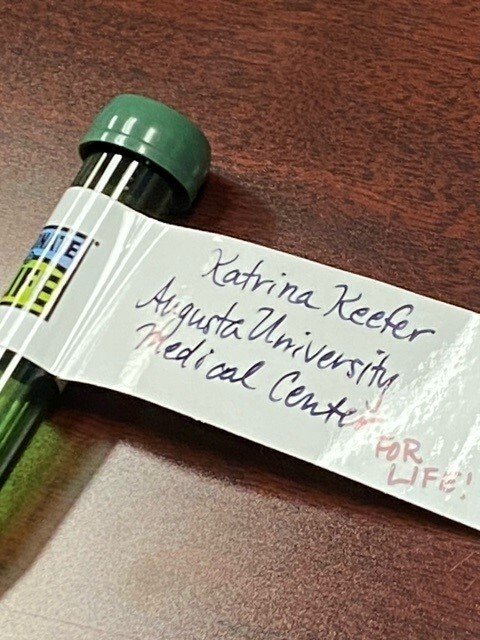 Katrina Keefer
Augusta University
Medical Center
FOR
LIFE!